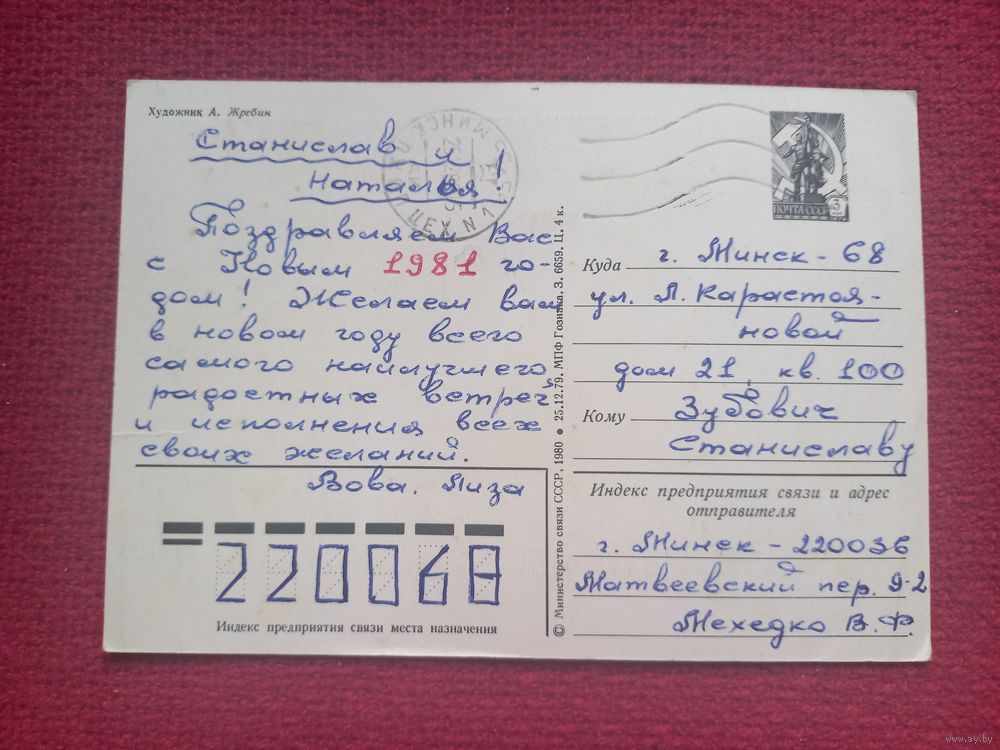 Художник А. Жребин
Станислав и
Наталья!
Поздравляем Вас
с Новым 1981 го-
дом! Желаем вам
в новом году всего
самого наилучшего
радостных встреч
и исполнения всех
своих желаний.
Вова, Лиза
220068
Индекс предприятия связи места назначения
© Министерство связи СССР, 1980 • 25.12.79. МПФ Гознака. З. 6659. Ц. 4 к.
МИНСК
ЦЕХ N 1
ПОЧТА СССР 3
Куда г. Минск - 68
ул. Л. Карастоя-
новой
дом 21, кв. 100
Кому Зубович
Станиславу
Индекс предприятия связи и адрес
отправителя
г. Минск - 220036
Матвеевский пер. 9-2
Мехедко В.Ф.
www.ay.by